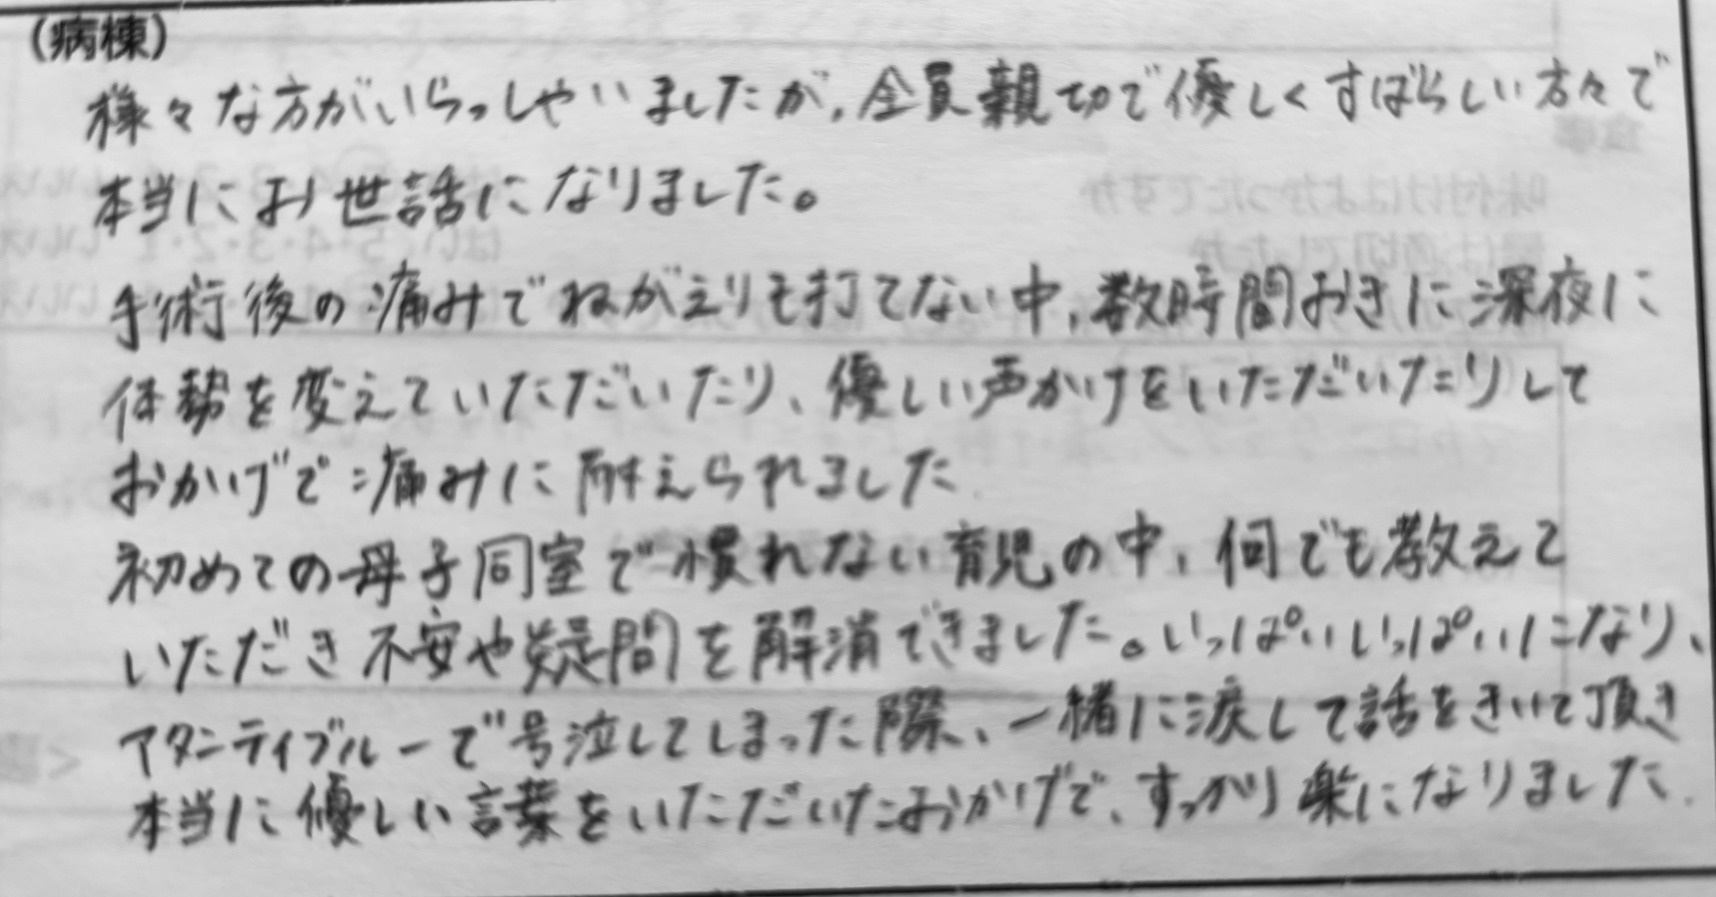 (病棟)
様々な方がいらっしゃいましたが、全員親切で優しくすばらしい方々で
本当にお世話になりました。
手術後の痛みでねがえりも打てない中、数時間おきに深夜に
体勢を変えていただいたり、優しい声かけをいただいたりして
おかげで痛みに耐えられました
初めての母子同室で慣れない育児の中、何でも教えて
いただき不安や疑問を解消できました。いっぱいいっぱいになり、
マタニティブルーで号泣してしまった際、一緒に涙して話をきいて頂き
本当に優しい言葉をいただいたおかげで、すっかり楽になりました.
味付けはよかったですか
量は適切でしたか
食事